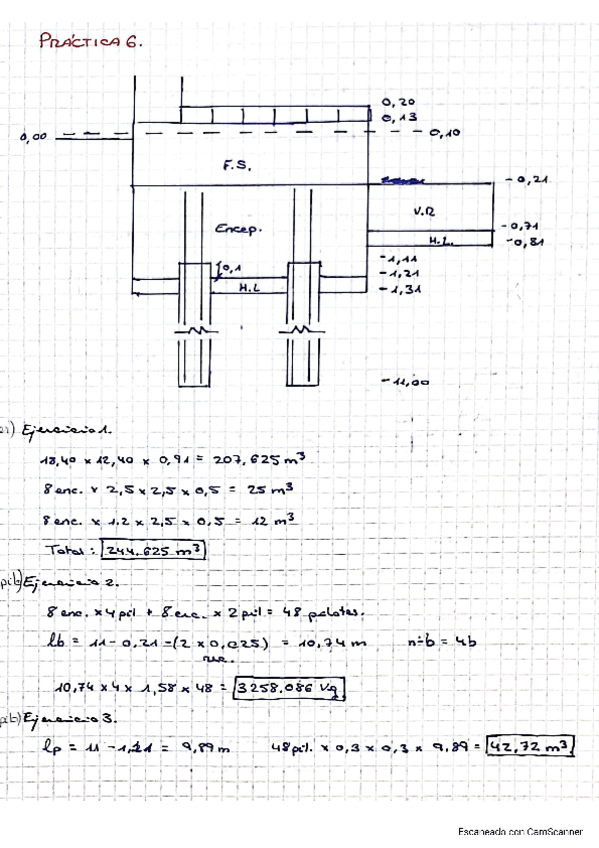 PRÁCTICA 6.
0,20
0,13
0,00
0,10
F.S.
-0,21
V.R
Encep.
-0,71
H.L.
-0,81
-1,11
0,1
-1,21
H.L
-1,31
-11,00
Ejercicio 1.
18,40 x 12,40 x 0,91 = 207,625 m³
8 enc. x 2,5 x 2,5 x 0,5 = 25 m³
8 enc. x 1,2 x 2,5 x 0,5 = 12 m³
Total: 244,625 m³
Ejercicio 2.
8 enc. x 4 pil + 8 enc. x 2 pil = 48 pilotes.
lb = 11 - 0,21 - (2 x 0,025) = 10,74 m n÷b = 4b
rec.
10,74 x 4 x 1,58 x 48 = 3258,086 Kg
Ejercicio 3.
lp = 11 - 1,21 = 9,89 m 48 pil. x 0,3 x 0,3 x 9,89 = 42,72 m³
Escaneado con CamScanner